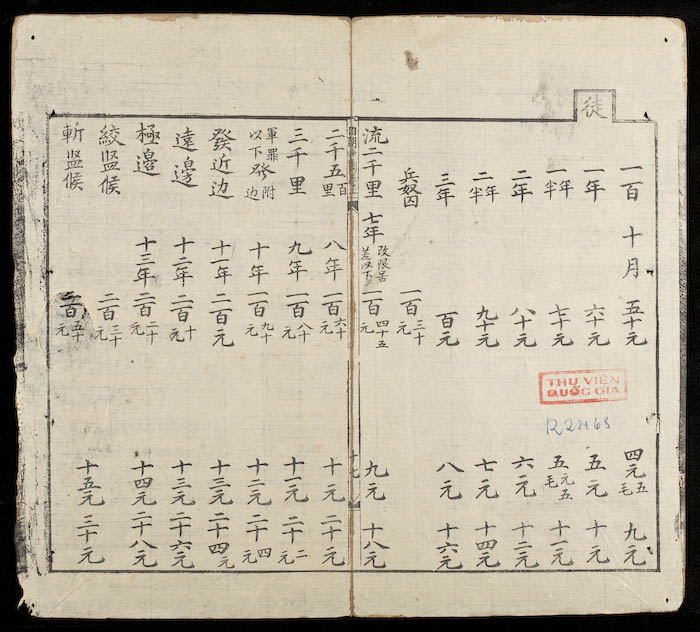 徒
一百 十月 五十元 四元五毛 九元
一年 六十元 五元 十元
一年半 七十元 五元五毛 十一元
二年 八十元 六元 十二元
二年半 九十元 七元 十四元
三年 百元 八元 十六元
兵奴囚 一百三十元
流二千里 七年 改限苦差以下 一百四十五元 九元 十八元
十七
二千五百里 八年 一百六十元 十元 二十元
三千里 九年 一百八十元 十一元 二十二元
軍罪以下發附边 十年 一百九十元 十二元 二十四元
發近边 十一年 二百元 十二元 二十四元
遠邊 十二年 二百十元 十三元 二十六元
極邊 十三年 二百二十元 十四元 二十八元
絞监候 二百三十元
斬监候 二百五十元 十五元 三十元
THƯ VIỆN
QUỐC GIA
R.2268